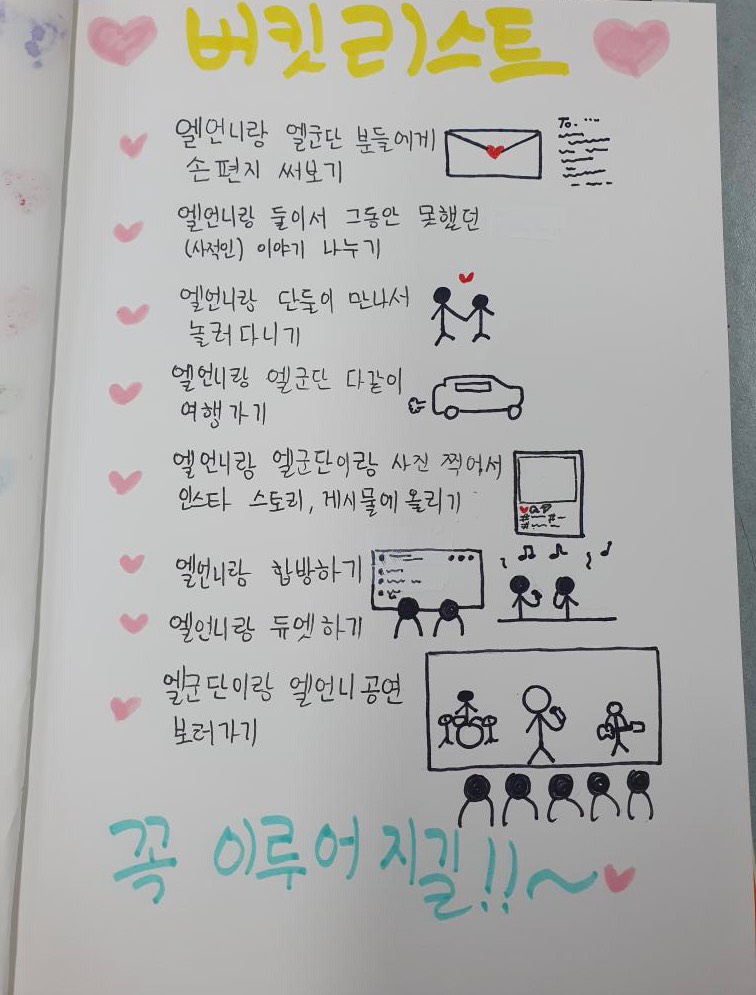 버킷리스트
엘언니랑 엘군단 분들에게
손편지 써보기
To. ...
엘언니랑 둘이서 그동안 못했던
(사적인) 이야기 나누기
엘언니랑 단들이 만나서
놀러다니기
엘언니랑 엘군단 다같이
여행가기
엘언니랑 엘군단이랑 사진 찍어서
인스타 스토리, 게시물에 올리기
엘언니랑 합방하기
엘언니랑 듀엣하기
엘군단이랑 엘언니 공연
보러가기
꼭 이루어지길!!~